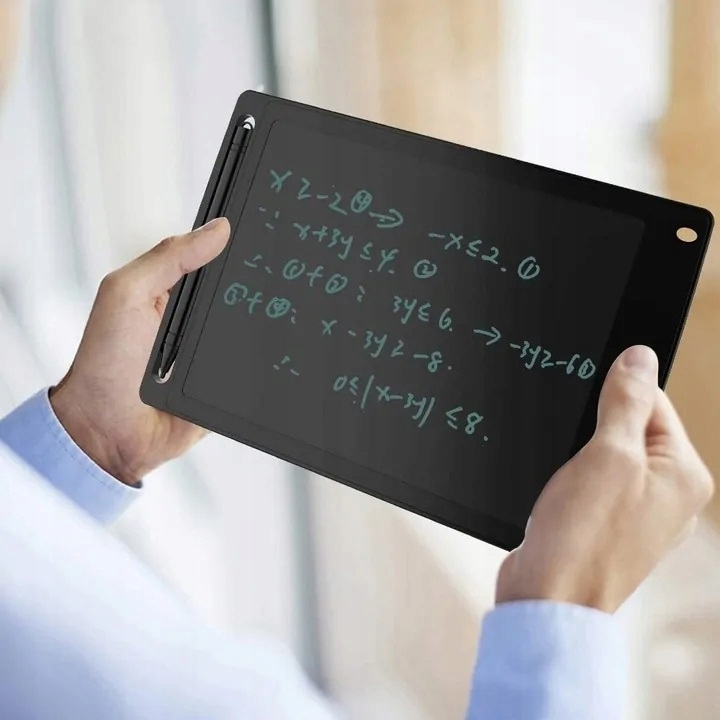 x ≥ -2 ④ → -x ≤ 2. ①
∵ x+3y ≤ 4. ②
∴ ①+②: 3y ≤ 6. → -3y ≥ -6 ③
③+④: x-3y ≥ -8.
∴ 0 ≤ |x-3y| ≤ 8.